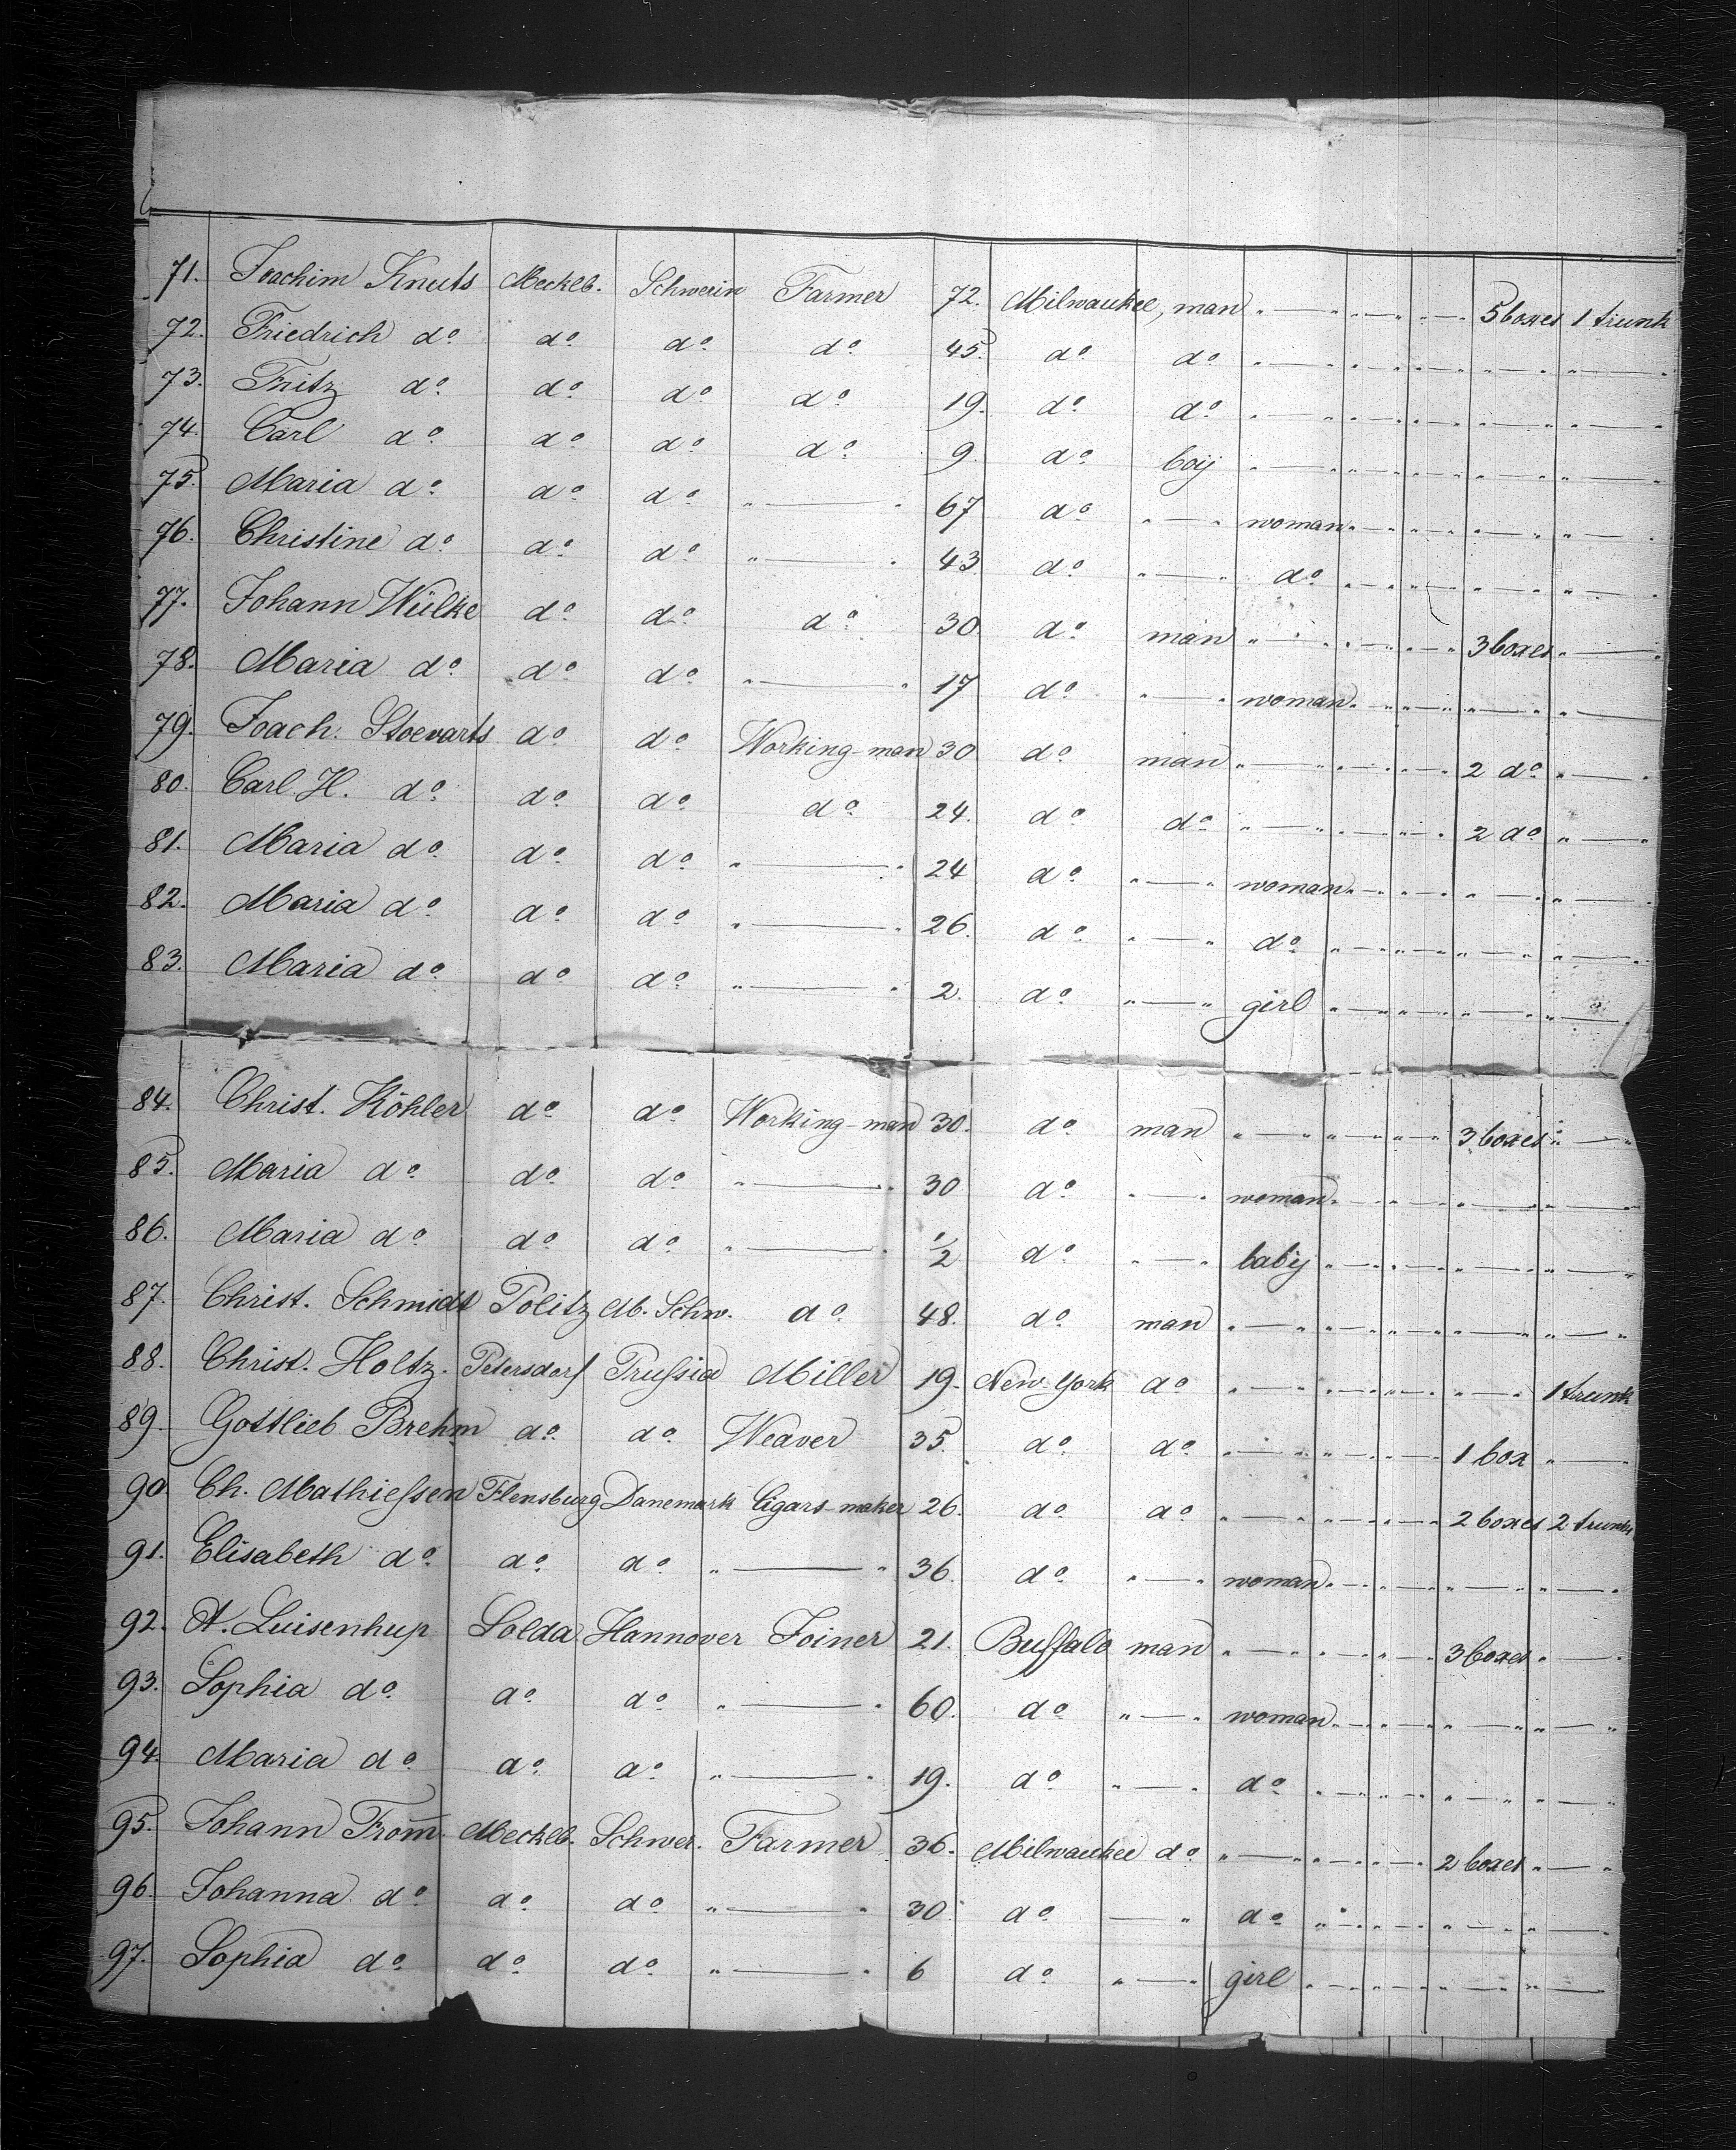 71. Joachim Knuts Mecklb. Schwerin Farmer 72. Milwaukee, man " — " " — " " — " 5 boxes 1 trunk
72. Friedrich do do do do 45. do do " — " " — " " — " " — " " — "
73. Fritz do do do do 19. do do " — " " — " " — " " — " " — "
74. Carl do do do do 9. do boij " — " " — " " — " " — " " — "
75. Maria do do do " — " 67 do " — " woman " — " " — " " — " " — "
76. Christine do do do " — " 43 do " — " do " — " " — " " — " " — "
77. Johann Wülke do do do 30 do man " — " " — " " — " 3 boxes " — "
78. Maria do do do " — " 17 do " — " woman " — " " — " " — " " — "
79. Joach. Stoevarts do do Working-man 30 do man " — " " — " " — " 2 do " — "
80. Carl H. do do do do 24. do do " — " " — " " — " 2 do " — "
81. Maria do do do " — " 24 do " — " woman " — " " — " " — " " — "
82. Maria do do do " — " 26. do " — " do " — " " — " " — " " — "
83. Maria do do do " — " 2. do " — " girl " — " " — " " — " " — "
84. Christ. Köhler do do Working-man 30. do man " — " " — " " — " 3 boxes " — "
85. Maria do do do " — " 30 do " — " woman " — " " — " " — " " — "
86. Maria do do do " — " 1/2 do " — " babij " — " " — " " — " " — "
87. Christ. Schmidt Politz M. Schw. do 48. do man " — " " — " " — " " — " " — "
88. Christ. Holtz. Petersdorf Prussia Miller 19. New-York do " — " " — " " — " " — " 1 trunk
89. Gottlieb Brehm do do Weaver 35. do do " — " " — " " — " 1 box " — "
90 Ch. Mathiessen Flensburg Danemark Cigars-maker 26. do do " — " " — " " — " 2 boxes 2 trunks
91. Elisabeth do do do " — " 36. do " — " woman " — " " — " " — " " — "
92. A. Luisenhup Solda Hannover Joiner 21. Buffalo man " — " " — " " — " 3 boxes " — "
93. Sophia do do do " — " 60. do " — " woman " — " " — " " — " " — "
94. Maria do do do " — " 19. do " — " do " — " " — " " — " " — "
95. Johann From̅ Mecklb. Schwer. Farmer 36. Milwaukee do " — " " — " " — " 2 boxes " — "
96. Johanna do do do " — " 30. do — " do " — " " — " " — " " — "
97. Sophia do do do " — " 6 do " — " girl " — " " — " " — " " — "